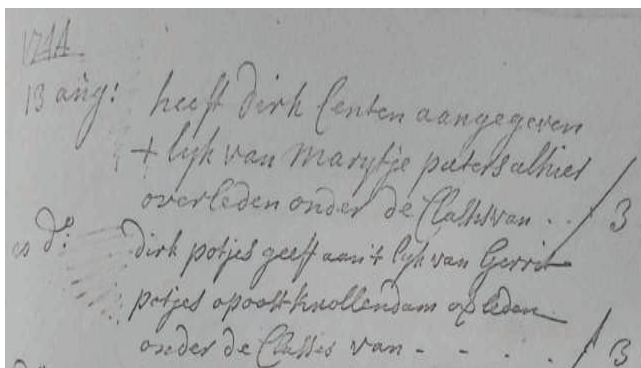 1744
13 aug: heeft Dirk Centen aangegeven
+ lyk van Marytje paters alhier
overleden onder de Classis van . . / 3
20 do: Dirk potjes geeft aan t lyk van Gerrit
potjes op oostknollendam overleden
onder de Classis van - - . . / 3
do